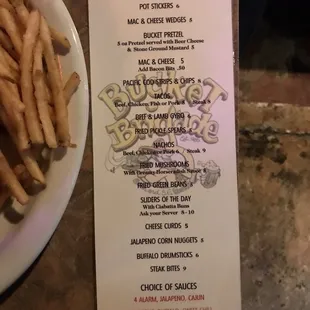 POT STICKERS 6
MAC & CHEESE WEDGES 5
BUCKET PRETZEL
5 oz Pretzel served with Beer Cheese
& Stone Ground Mustard 5
MAC & CHEESE 5
Add Bacon Bits .50
PACIFIC COD STRIPS & CHIPS 8
TACOS
Beef, Chicken, Fish or Pork 8 / Steak 9
BEEF & LAMB GYRO 6
FRIED PICKLE SPEARS
NACHOS
Beef, Chicken or Pork 8 / Steak 9
FRIED MUSHROOMS
With Creamy Horseradish Sauce
FRIED GREEN BEANS 5
SLIDERS OF THE DAY
With Ciabatta Buns
Ask your Server 8-10
CHEESE CURDS 5
JALAPENO CORN NUGGETS 5
BUFFALO DRUMSTICKS 6
STEAK BITES 9
CHOICE OF SAUCES
4 ALARM, JALAPENO, CAJUN